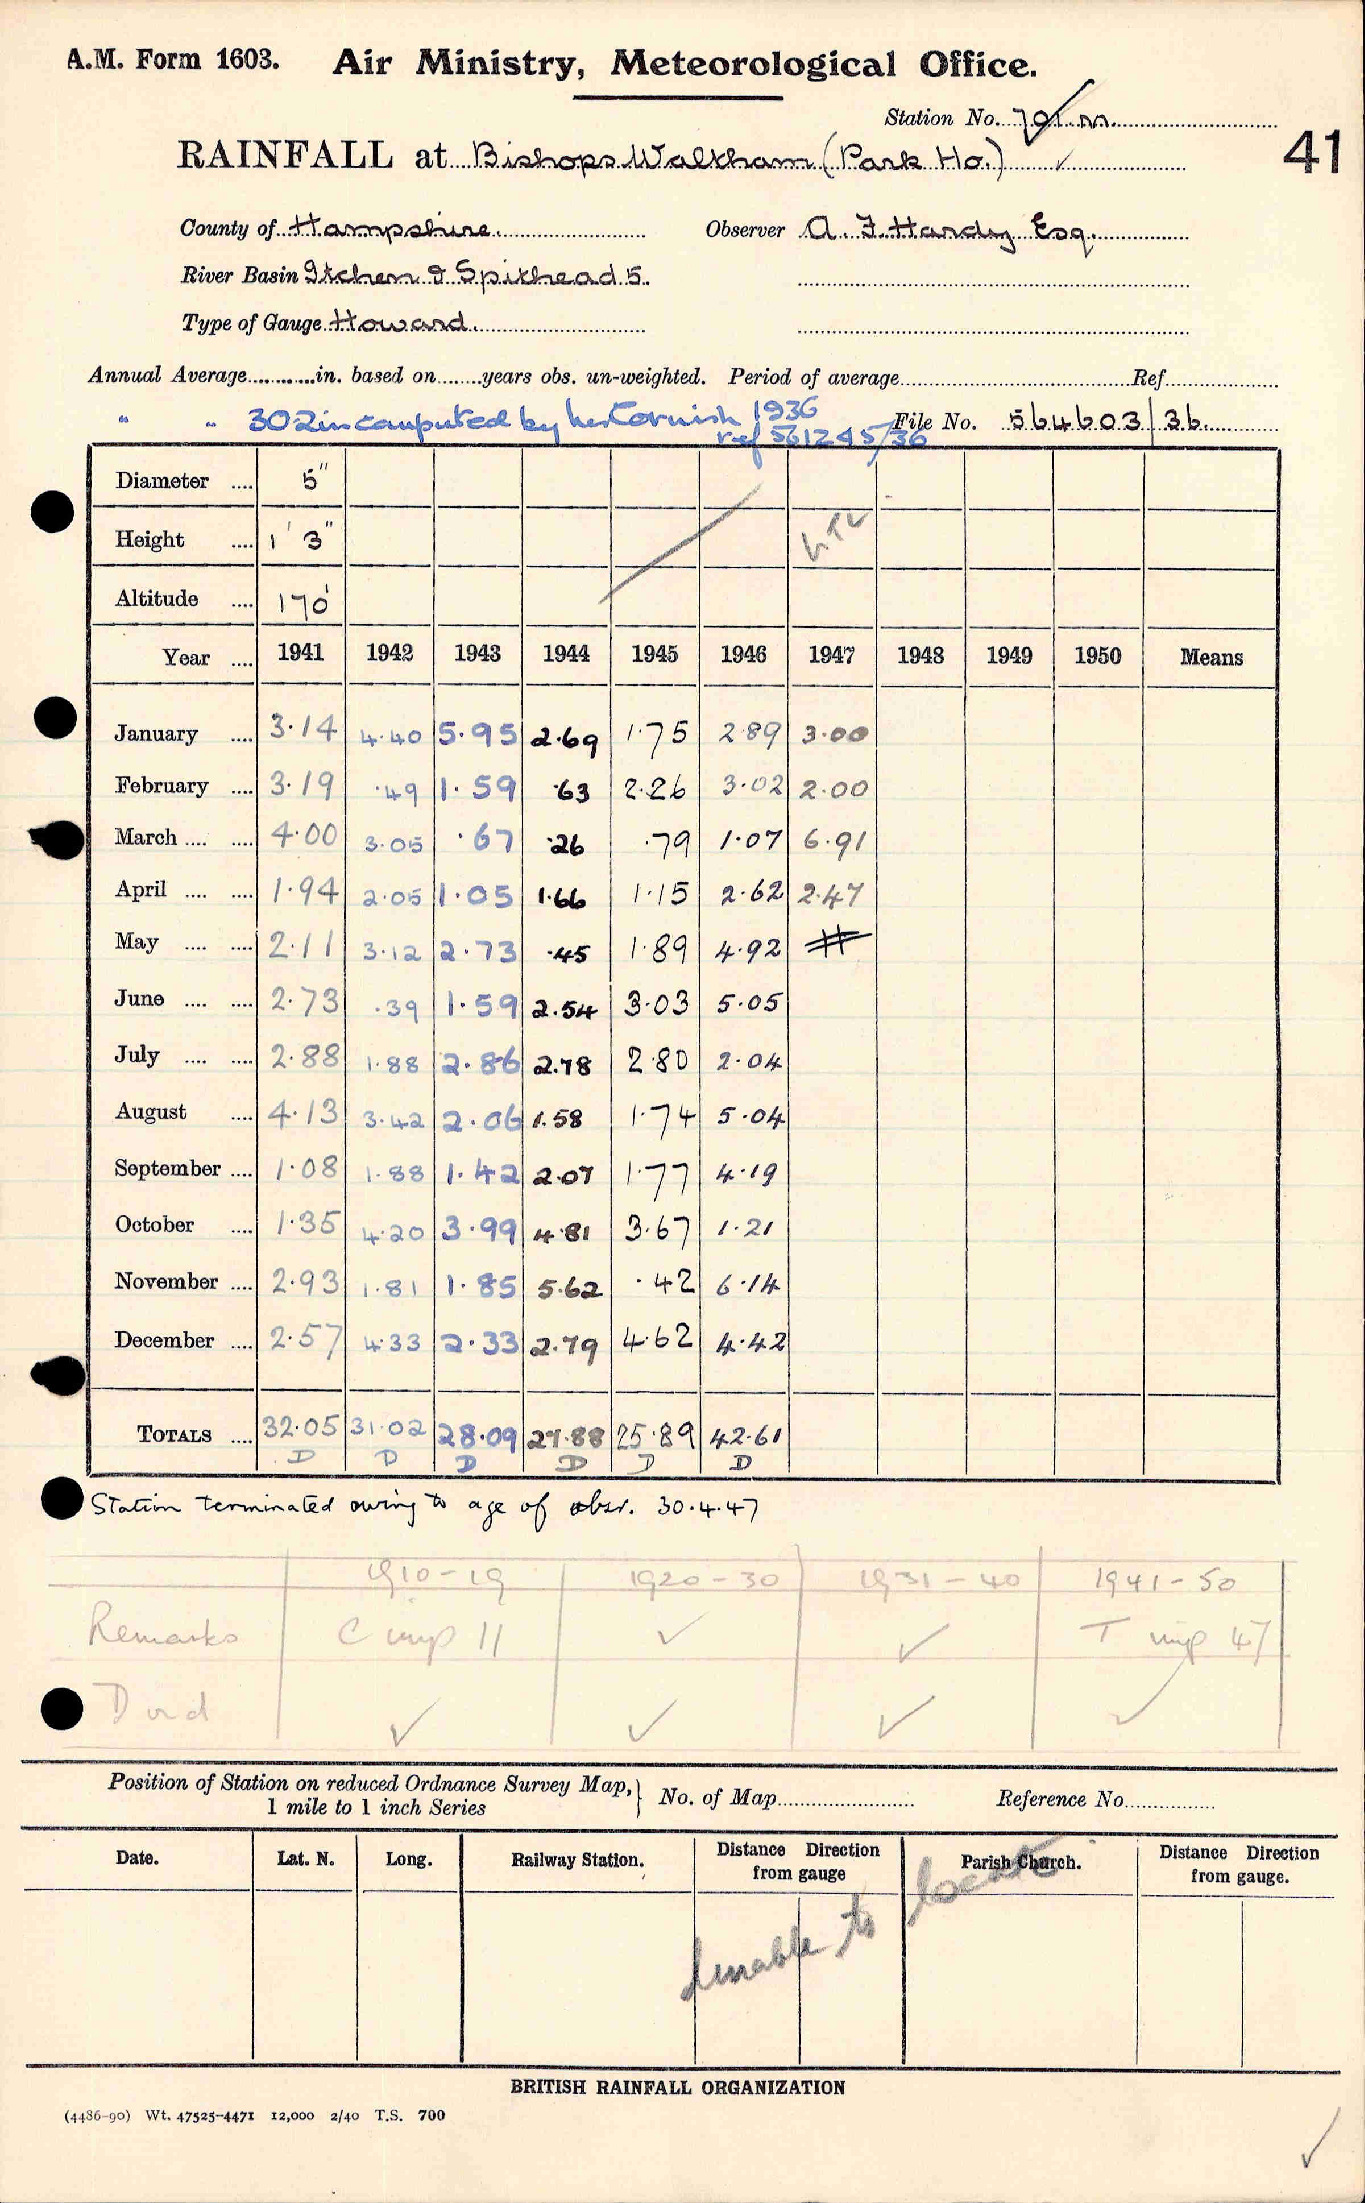 A.M. Form 1603. Air Ministry, Meteorological Office.
Station No. 701.m.
RAINFALL at Bishops Waltham (Park Ho.) ✓ 41
County of Hampshire Observer A. F. Hardy Esq.
River Basin Itchen & Spithead 5.
Type of Gauge Howard
Annual Average in. based on years obs. un-weighted. Period of average Ref
" " 30.2 in computed by Cornish 1936 File No. 564603/36
ref 561245/36
Diameter 5"
Height 1' 3"
Altitude 170'
Year 1941 1942 1943 1944 1945 1946 1947 1948 1949 1950 Means
January 3.14 4.40 5.95 2.69 1.75 2.89 3.00
February 3.19 .49 1.59 .63 2.26 3.02 2.00
March 4.00 3.05 .67 .26 .79 1.07 6.91
April 1.94 2.05 1.05 1.66 1.15 2.62 2.47
May 2.11 3.12 2.73 .45 1.89 4.92 #
June 2.73 .39 1.59 2.54 3.03 5.05
July 2.88 1.88 2.86 2.78 2.80 2.04
August 4.13 3.42 2.06 1.58 1.74 5.04
September 1.08 1.88 1.42 2.07 1.77 4.19
October 1.35 4.20 3.99 4.81 3.67 1.21
November 2.93 1.81 1.85 5.62 .42 6.14
December 2.57 4.33 2.33 2.79 4.62 4.42
TOTALS 32.05 31.02 28.09 27.88 25.89 42.61
D D D D D D
Station terminated owing to age of obsr. 30.4.47
1910-19 1920-30 1931-40 1941-50
Remarks C imp 11 ✓ ✓ T imp 47
D ✓ ✓ ✓ ✓
Position of Station on reduced Ordnance Survey Map, } No. of Map Reference No
1 mile to 1 inch Series
Date. Lat. N. Long. Railway Station. Distance Direction from gauge Parish Church. Distance Direction from gauge.
Unable to locate
BRITISH RAINFALL ORGANIZATION
(4486-90) Wt. 47525-4471 12,000 2/40 T.S. 700
✓